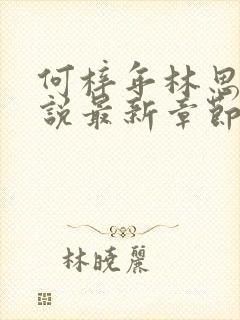 何梓年林思
說最新章節
林曉麗